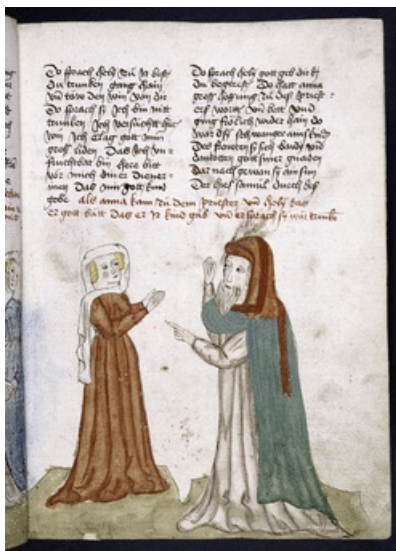 Do sprach Hely zů ir bist
du trunken gang hain
vnd den win von dir
Do sprach si Ich bin nitt
trunken Ich
von Ich Clag gott min
groß liden Das Ich vn
fruchtbar bin Here bitt
vor mich din er Diener-
inen Das mir gott kind
gebe
Do sprach Hely gott geb dir
du begerest Do hatt anna
groß hoffnung zů deß priest-
ers wort vnd
ging frölich wider hain do
war schwanger ains kinds
Des fröwten si sich bayd vnd
danketen gott siner gnaden
Dar nach gewan sy ain sun
Der hieß samuel durch diß
Als anna kam zů dem priester vnd Hely das
er gott bätt Das er ir kind gäb vnd er sprach sy wär trunken